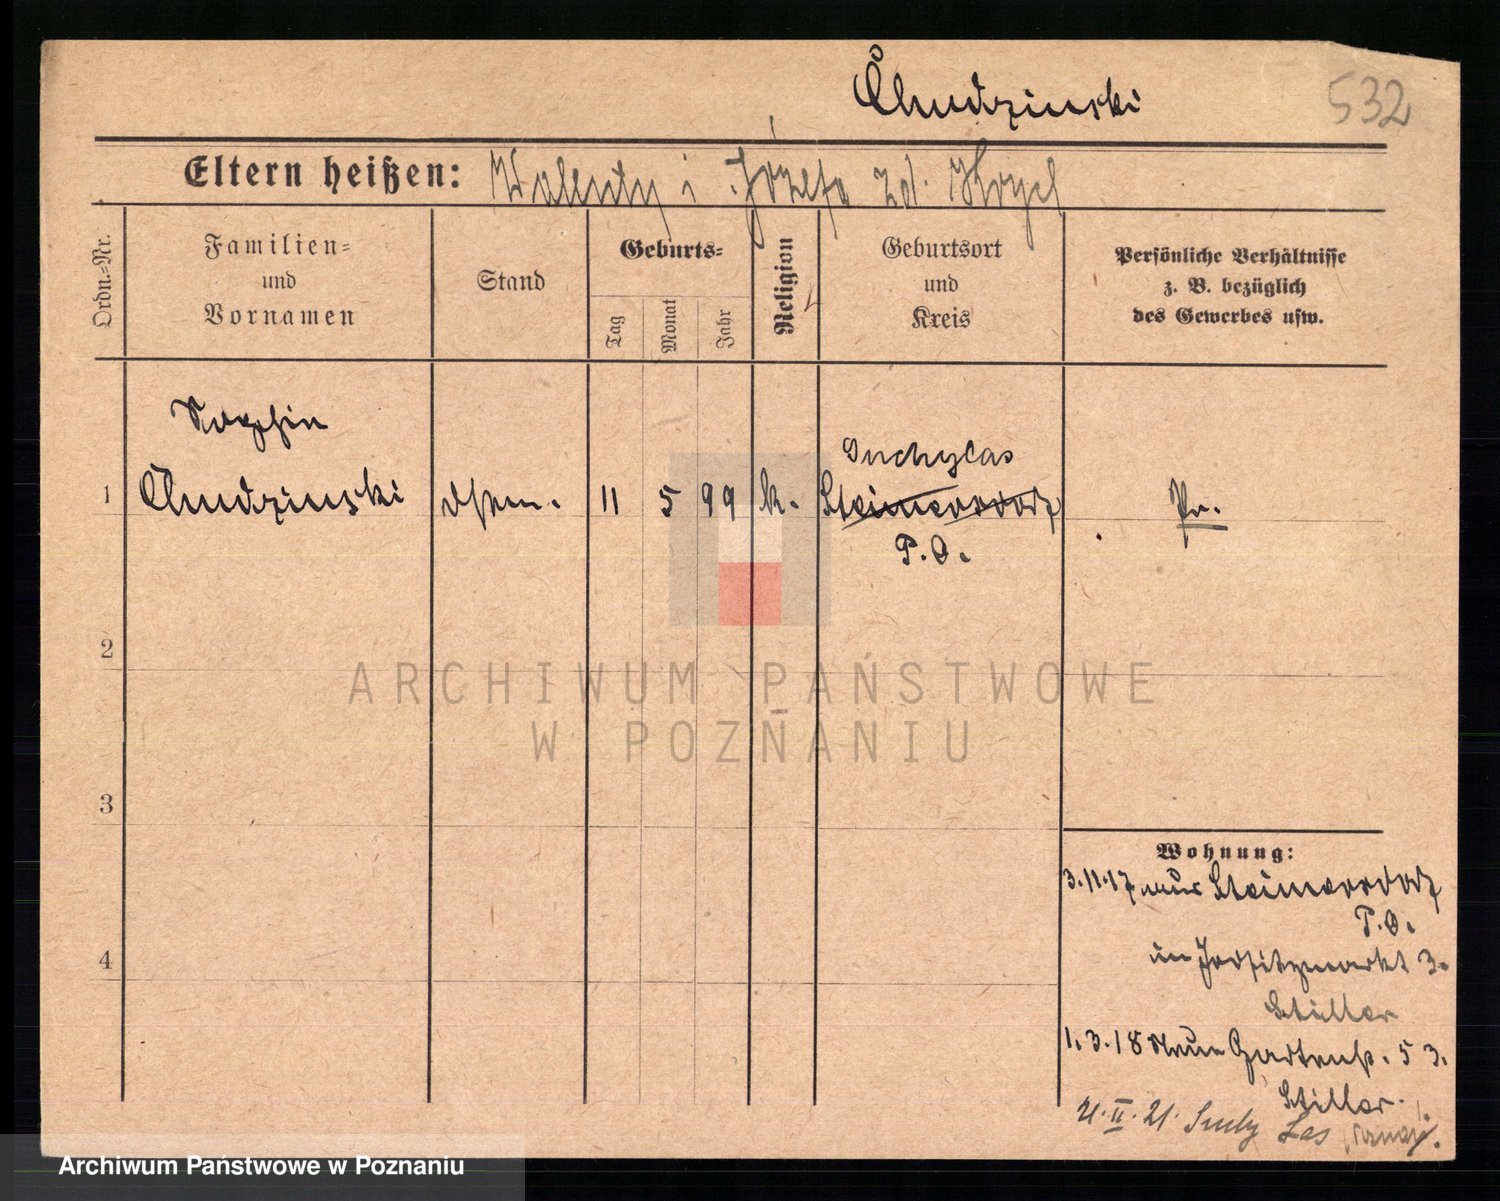 Chudzinski
532
Eltern heißen: Walenty i Józefa zd. Kryel
Ordn.=Nr.
Familien=
und
Vornamen
Stand
Geburts=
Tag
Monat
Jahr
Religion
Geburtsort
und
Kreis
Persönliche Verhältnisse
z. B. bezüglich
des Gewerbes usw.
Sophie
Suchylas
1 Chudzinski 11 5 99 k. Pr.
P.O.
2
ARCHIWUM PAŃSTWOWE
W POZNANIU
3
Wohnung:
3.11.17 aus
P.O.
4
3.
Stiller
1.3.18 Neue Gartenstr. 53.
Stiller.
21.II.21. Suchy Las
Archiwum Państwowe w Poznaniu